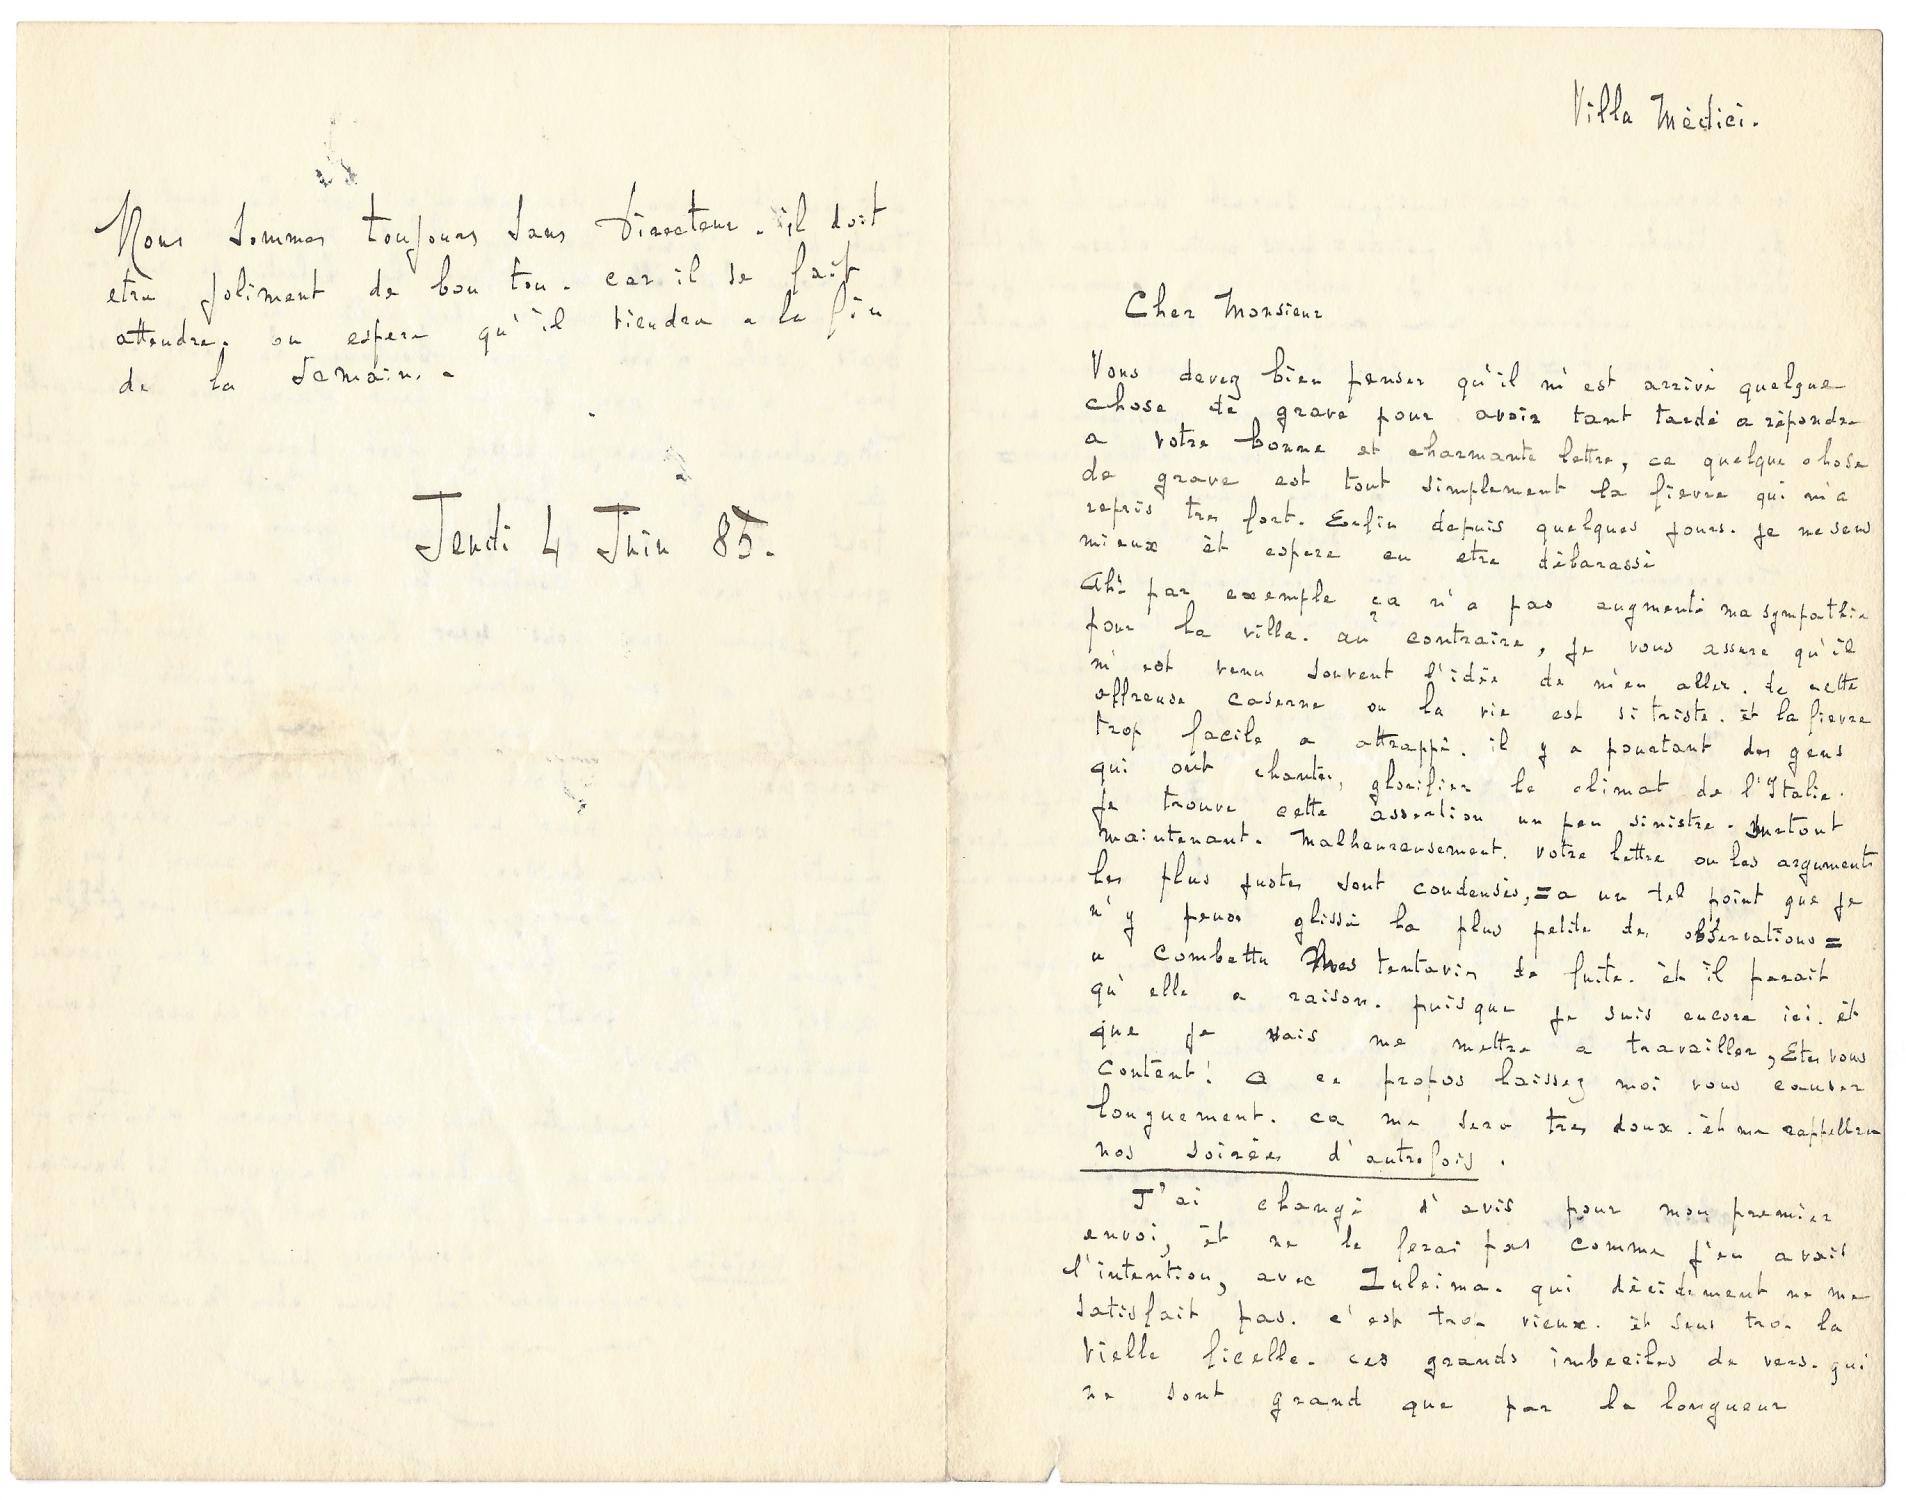 Nous sommes toujours sans Directeur. il doit
etre joliment de bon ton. car il se fait
attendre. on espere qu'il viendra a la fin
de la semaine. -
Jeudi 4 Juin 85.
Villa Médici.
Cher Monsieur
Vous devez bien penser qu'il m'est arrivé quelque
chose de grave pour avoir tant tardé a répondre
a votre bonne et charmante lettre, ce quelque chose
de grave est tout simplement la fievre qui m'a
repris tres fort. Enfin depuis quelques jours. je me sens
mieux et espere en etre débarassé
Ah! par exemple ça n'a pas augmenté ma sympathie
pour la villa. au contraire, je vous assure qu'il
m'est venu souvent l'idée de m'en aller. de cette
affreuse caserne ou la vie est si triste. et la fievre
trop facile a attrappé. il y a pourtant des gens
qui ont chanté, glorifier le climat de l'Italie.
je trouve cette assertion un peu sinistre. surtout
maintenant. Malheureusement. votre lettre ou les arguments
les plus justes sont condensés, = a un tel point que je
n'y peux glissé la plus petite des observations =
a combattu mes de fuite. et il parait
qu'elle a raison. puisque je suis encore ici. et
que je vais me mettre a travailler, Etes vous
content! a ce propos laissez moi vous causer
longuement. ca me sera tres doux. et me rappellera
nos soirées d'autrefois.
J'ai changé d'avis pour mon premier
envoi, et ne le ferai pas comme j'en avais
l'intention, avec Zuleima. qui décidement ne me
satisfait pas. c'est trop vieux. et sens trop la
vielle ficelle. ces grands imbeciles de vers. qui
ne sont grand que par la longueur